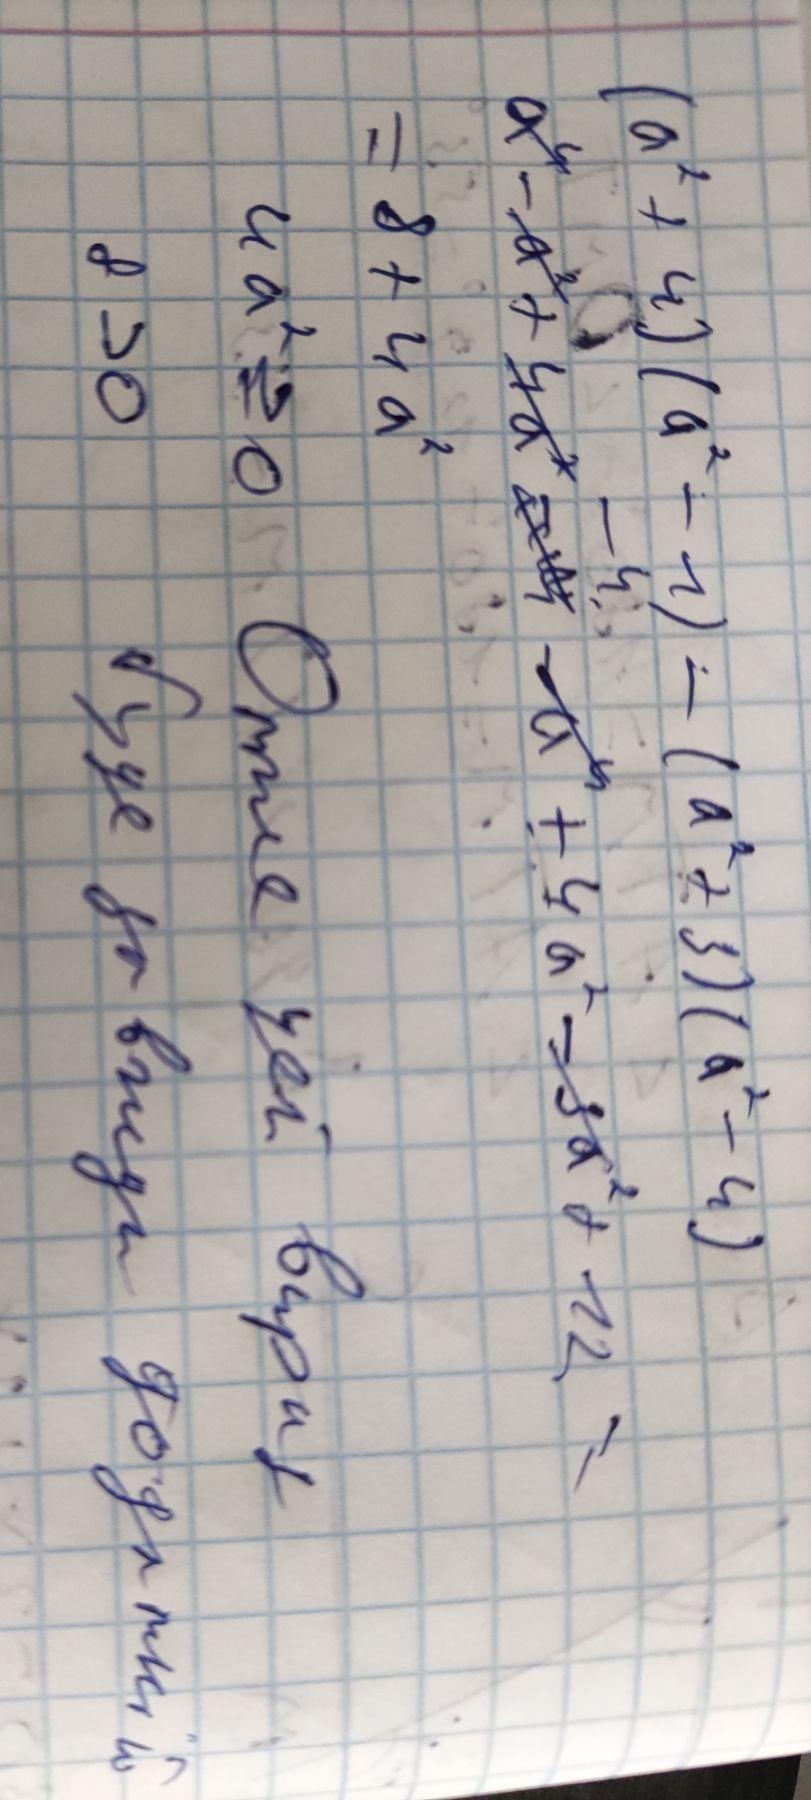 (a² + 4)(a² - 1) - (a² + 3)(a² - 4)
- 4
a⁴ - a² + 4a² - a⁴ + 4a² - 3a² + 12 =
= 8 + 4a²
4a² ≥ 0 Отже цей вираз
8 > 0 буде завжди додатній